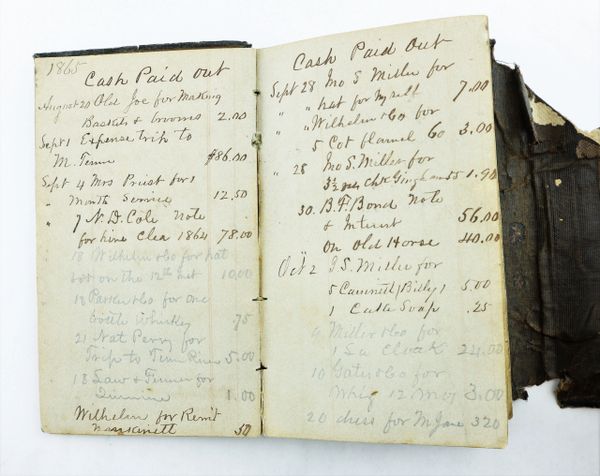 1865
Cash Paid out
August 20 Old Joe for Making
Baskets & brooms 2.00
Sept 1 Expense trip to
M. Tenn $86.00
Sept 4 Mrs Priest for 1
Month Service 12.50
" 7 N. D. Cole Note
for hire Clea 1864 78.00
18 Wilhelm & Co for hat
on the 12th inst 10.00
19 Parker & Co for one
bottle Whiskey .75
21 Nat Perry for
Trip to Tenn River 5.00
18 Law & Turner for
Quinine 1.00
Wilhelm for Remt
50
Cash Paid Out
Sept 28 Jno S Miller for
" " hat for myself 7.00
" " Wilhelm & Co for
5 flannel 60 3.00
" 28 Jno S. Miller for
3½ Chk Gingham 55 1.90
30. B. F. Bond Note
& Interest 56.00
on Old Horse 40.00
Oct 2 J S. Miller for
5 5.00
1 Soap .25
4 Miller & Co for
1 La Cloak 24.00
10 & Co for
Whig 12 Mos 3.00
20 dress for M Jane 3 20